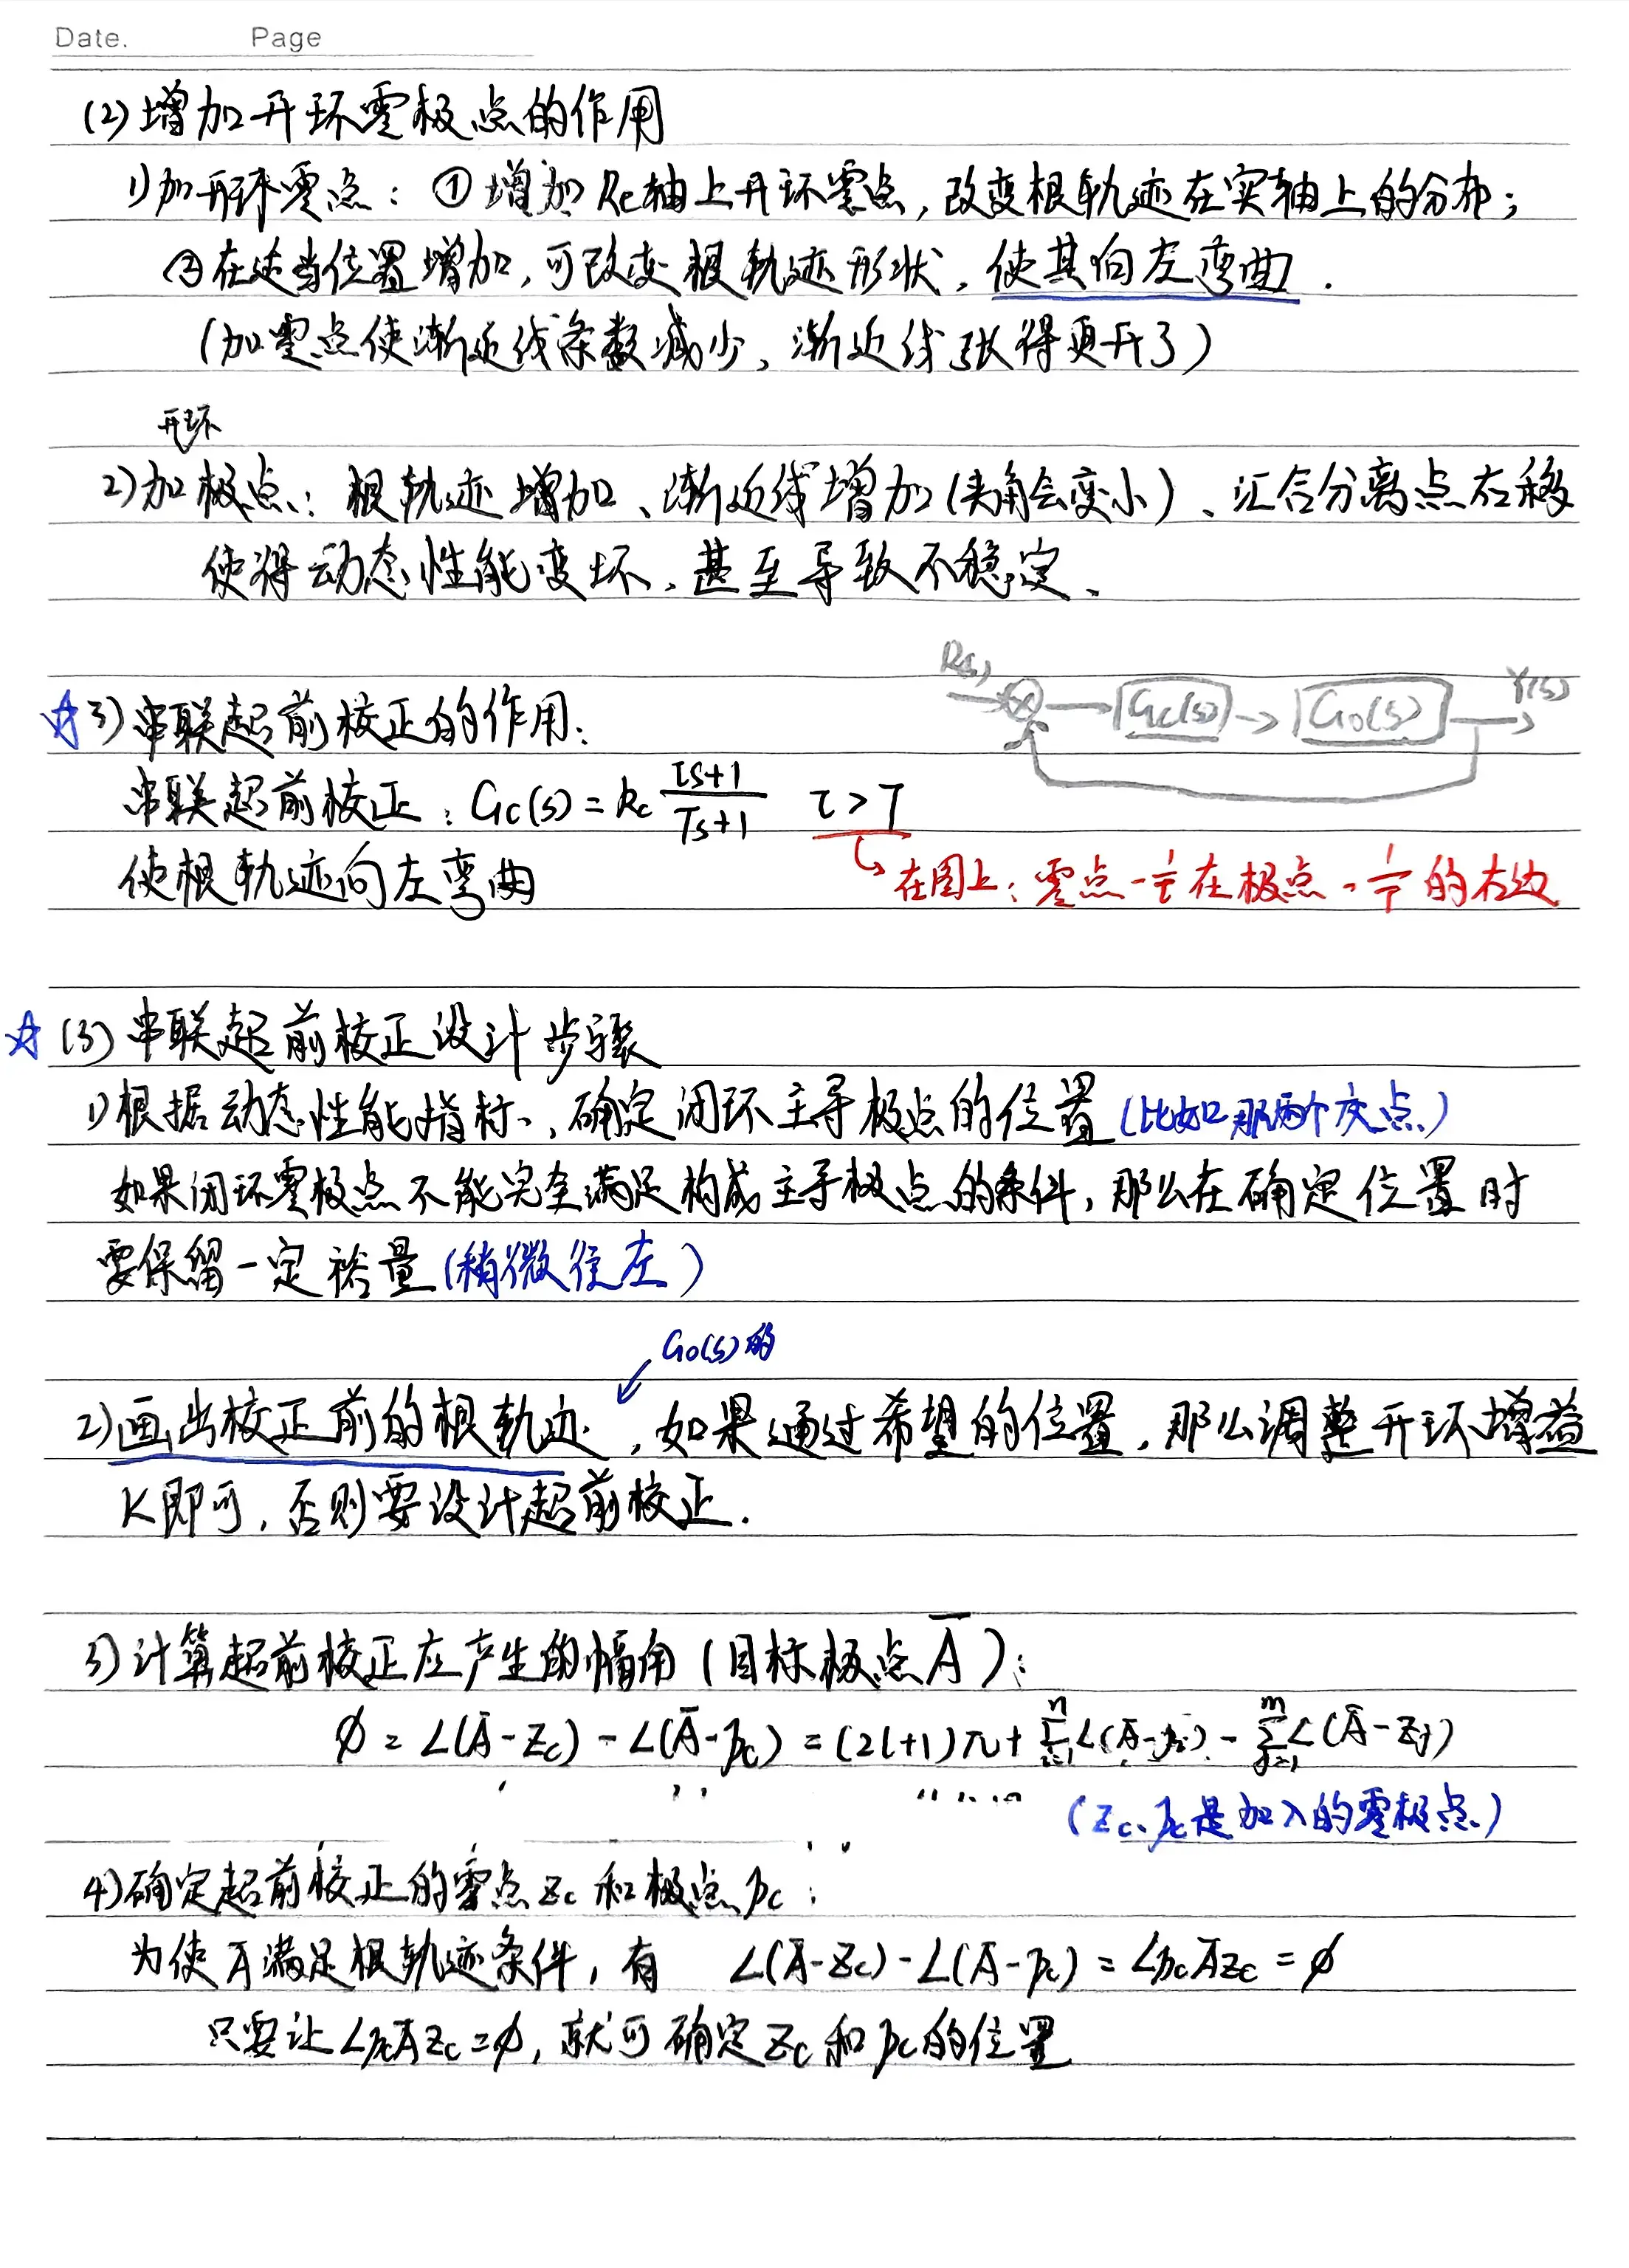 Date. Page
(2)增加开环零极点的作用
1)加开环零点：①增加Re轴上开环零点，改变根轨迹在实轴上的分布；
②在适当位置增加，可改变根轨迹形状，使其向左弯曲．
(加零点使渐近线条数减少，渐近线张得更开了)
开环
2)加极点：根轨迹增加、渐近线增加(夹角会变小)、汇合分离点右移
使得动态性能变坏、甚至导致不稳定、
R(s) Gc(s) Go(s) Y(s)
☆3)串联超前校正的作用：
串联超前校正：Gc(s)=kc (τs+1)/(Ts+1) τ>T
→在图上：零点-1/τ在极点-1/T的右边
使根轨迹向左弯曲
☆(3)串联超前校正设计步骤
1)根据动态性能指标、，确定闭环主导极点的位置(比如那两个交点)
如果闭环零极点不能完全满足构成主导极点的条件，那么在确定位置时
要保留一定裕量(稍微往左)
Go(s)的
2)画出校正前的根轨迹，如果通过希望的位置，那么调整开环增益
K即可，否则要设计超前校正．
3)计算超前校正应产生的幅角(目标极点Ā)：
φ=∠(Ā-Zc)-∠(Ā-pc)=(2l+1)π+∑_{i=1}^{n}∠(Ā-pi)-∑_{j=1}^{m}∠(Ā-Zj)
(Zc、pc是加入的零极点)
4)确定超前校正的零点Zc和极点pc：
为使Ā满足根轨迹条件，有 ∠(Ā-Zc)-∠(Ā-pc)=∠pcĀZc=φ
只要让∠pcĀZc=φ，就可确定Zc和pc的位置